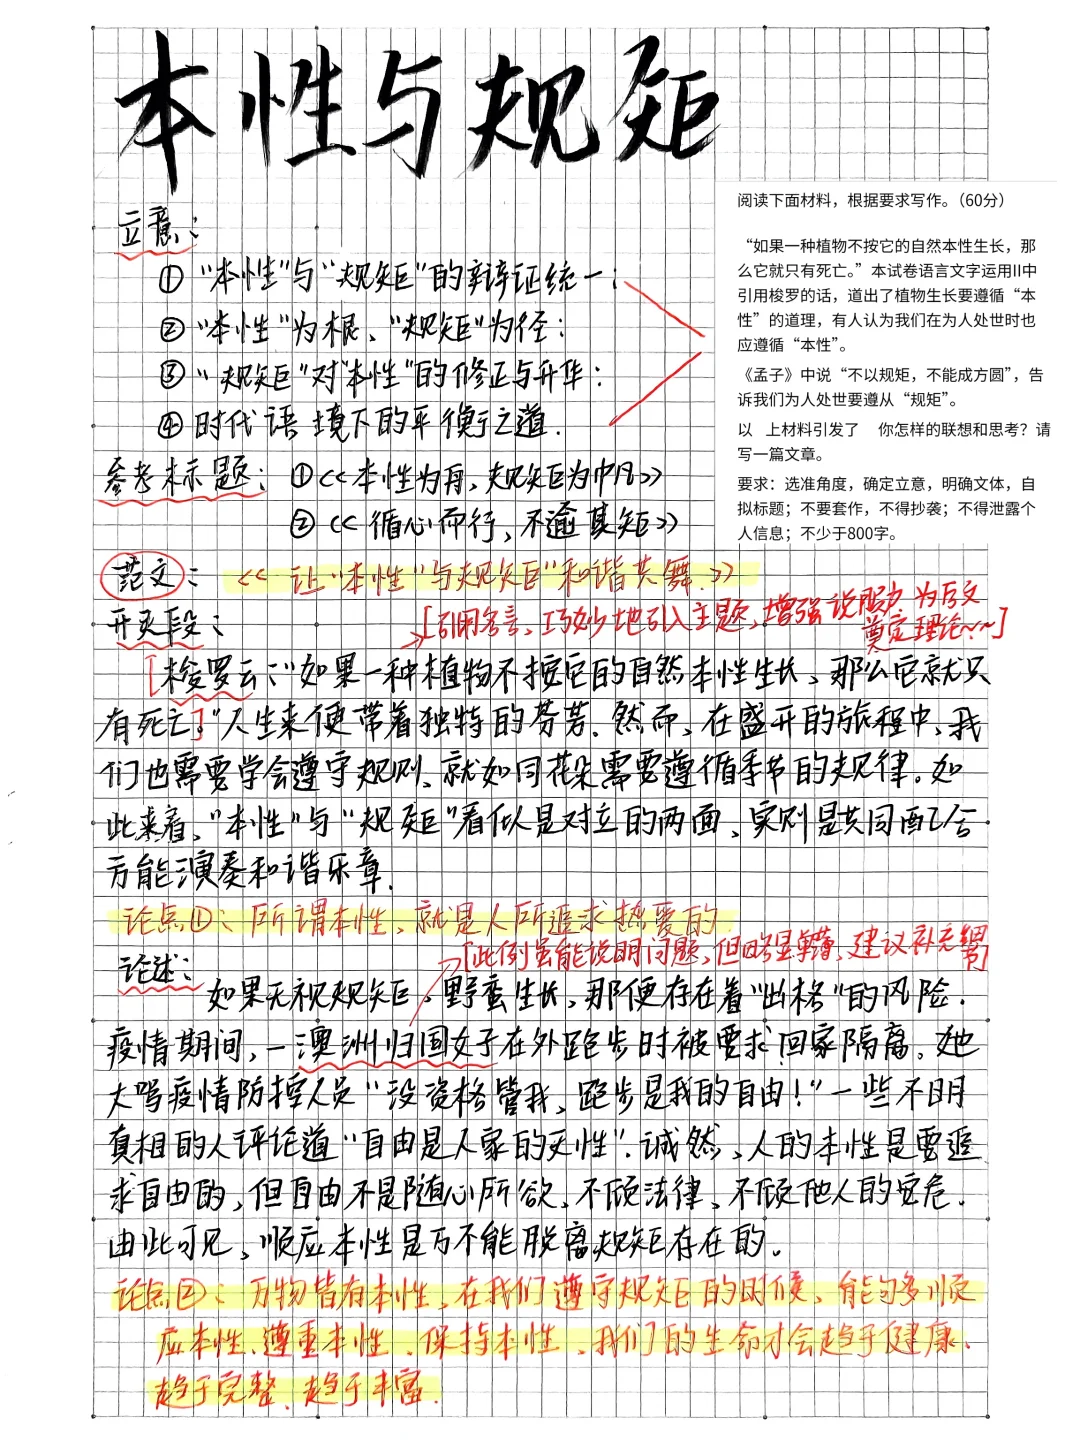 本性与规矩
阅读下面材料，根据要求写作。（60分）
“如果一种植物不按它的自然本性生长，那
么它就只有死亡。”本试卷语言文字运用II中
引用梭罗的话，道出了植物生长要遵循“本
性”的道理，有人认为我们在为人处世时也
应遵循“本性”。
《孟子》中说“不以规矩，不能成方圆”，告
诉我们为人处世要遵从“规矩”。
以 上材料引发了 你怎样的联想和思考？请
写一篇文章。
要求：选准角度，确定立意，明确文体，自
拟标题；不要套作，不得抄袭；不得泄露个
人信息；不少于800字。
立意：
①“本性”与“规矩”的辩证统一；
②“本性”为根、“规矩”为径：
③“规矩”对“本性”的修正与升华：
④时代语境下的平衡之道.
参考标题：①<<本性为舟，规矩为帆>>
②<<循心而行，不逾其矩>>
范文：<<让“本性”与规矩”和谐共舞.>>
开头段：
[引用名言，巧妙地引入主题，增强说服力 为后文
奠定理论~~]
梭罗云：“如果一种植物不按它的自然本性生长，那么它就只
有死亡。”人生来便带着独特的芬芳.然而，在盛开的旅程中，我
们也需要学会遵守规则、就如同花朵需要遵循季节的规律。如
此来看，“本性”与“规矩”看似是对立的两面、实则是共同配合
方能演奏和谐乐章.
论点①：所谓本性、就是人所追求热爱的.
[此例虽能说明问题，但略显单薄，建议补充细节]
论述：
如果无视规矩，野蛮生长，那便存在着“出格”的风险.
疫情期间，一澳洲归国女子在外跑步时被要求回家隔离，她
大骂疫情防控人员“没资格管我，跑步是我的自由！”一些不明
真相的人评论道“自由是人家的天性”.诚然、人的本性是要追
求自由的，但自由不是随心所欲、不顾法律、不顾他人的安危.
由此可见，顺应本性是万不能脱离规矩存在的.
论点②：万物皆有本性，在我们遵守规矩的时候，能够多顺
应本性、尊重本性、保持本性、我们的生命才会趋于健康、
趋于完整、趋于丰富.